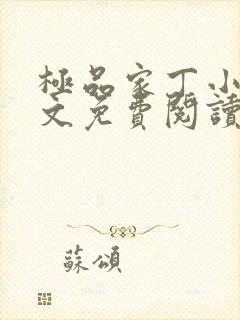 極品家丁小
文免費閱讀
蘇頌